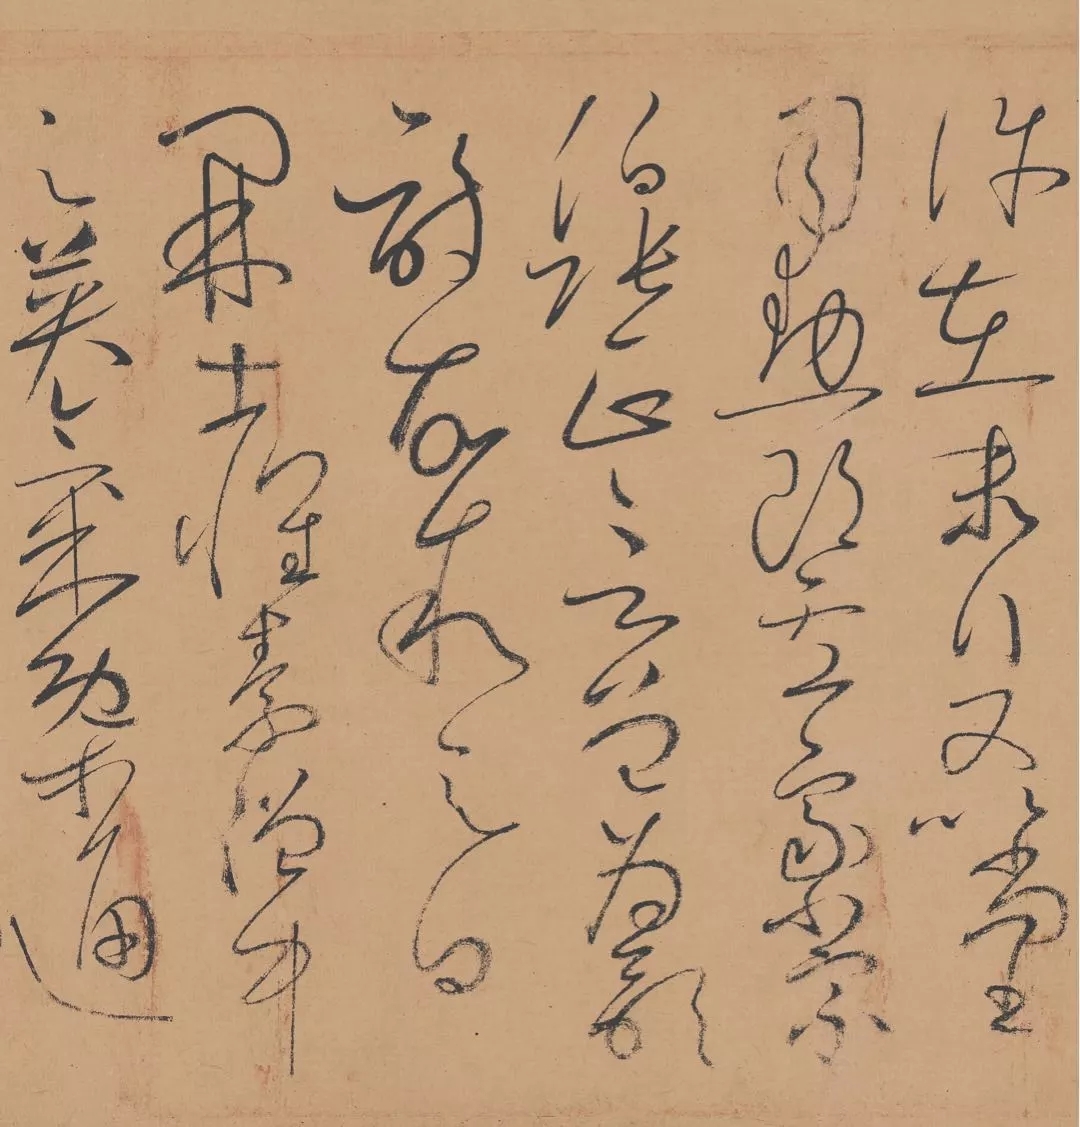 許在末行又以尚書
司勳郎盧象小宗
伯張正言曾為歌
詩故敘之曰
開士懷素僧中
之英氣概通